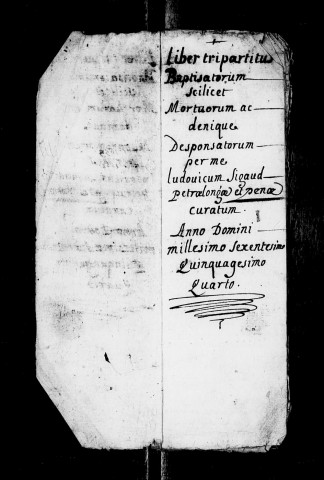 Liber tripartitus
Baptisatorum
scilicet
Mortuorum ac
denique
Desponsatorum
per me
ludovicum Sigaud
petrælongæ et penæ
curatum.
Anno Domini
millesimo Sexentesimo
Quinquagesimo
Quarto.